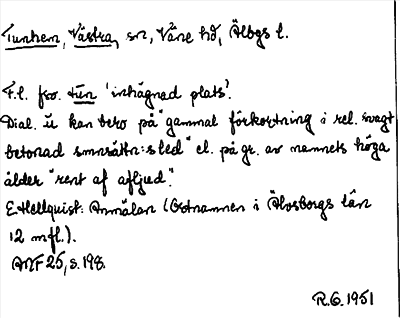 Tunhem, Västra, sn, Väne hd, Älvbgs l.
F.l. fsv. tūn 'inhägnad plats'.
Dial. ŭ kan bero på "gammal förkortning i rel. svagt
betonad smnsättn:sled" el. på gr. av namnets höga
ålder "rent af afljud".
E. Hellquist: Anmälan (Ortnamnen i Älvsborgs län
12 mfl.).
ANF 25, s. 198.
R.G. 1951